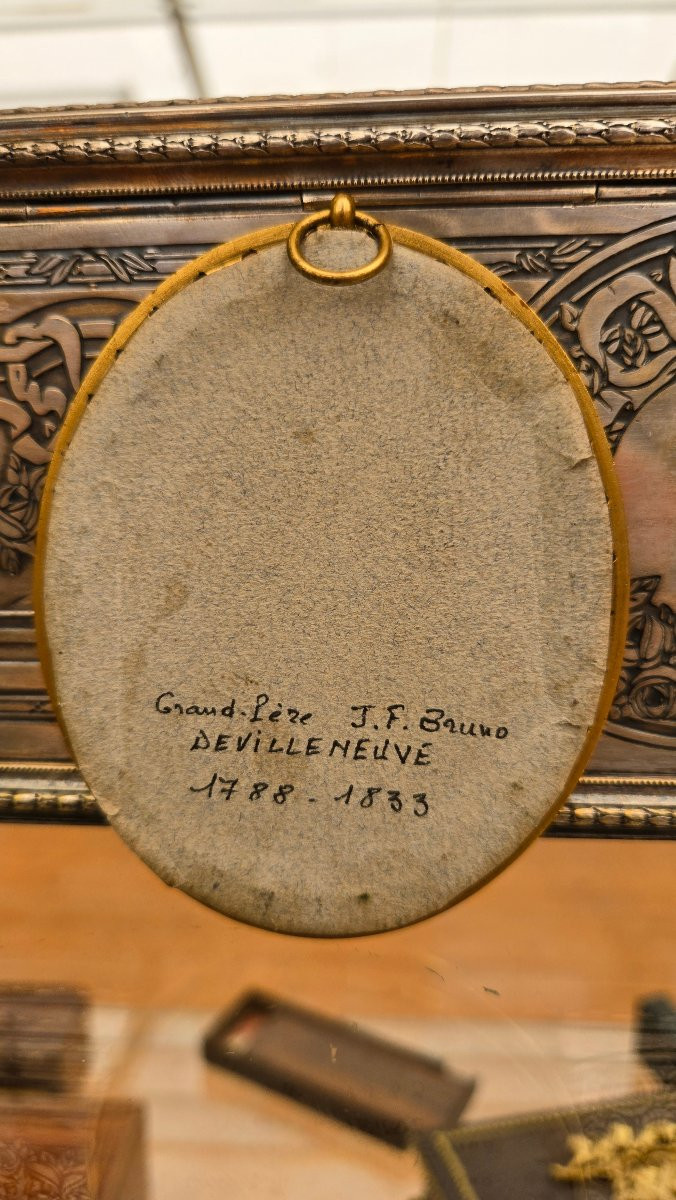 Grand-Père J.F. Bruno
DEVILLENEUVE
1788 - 1833